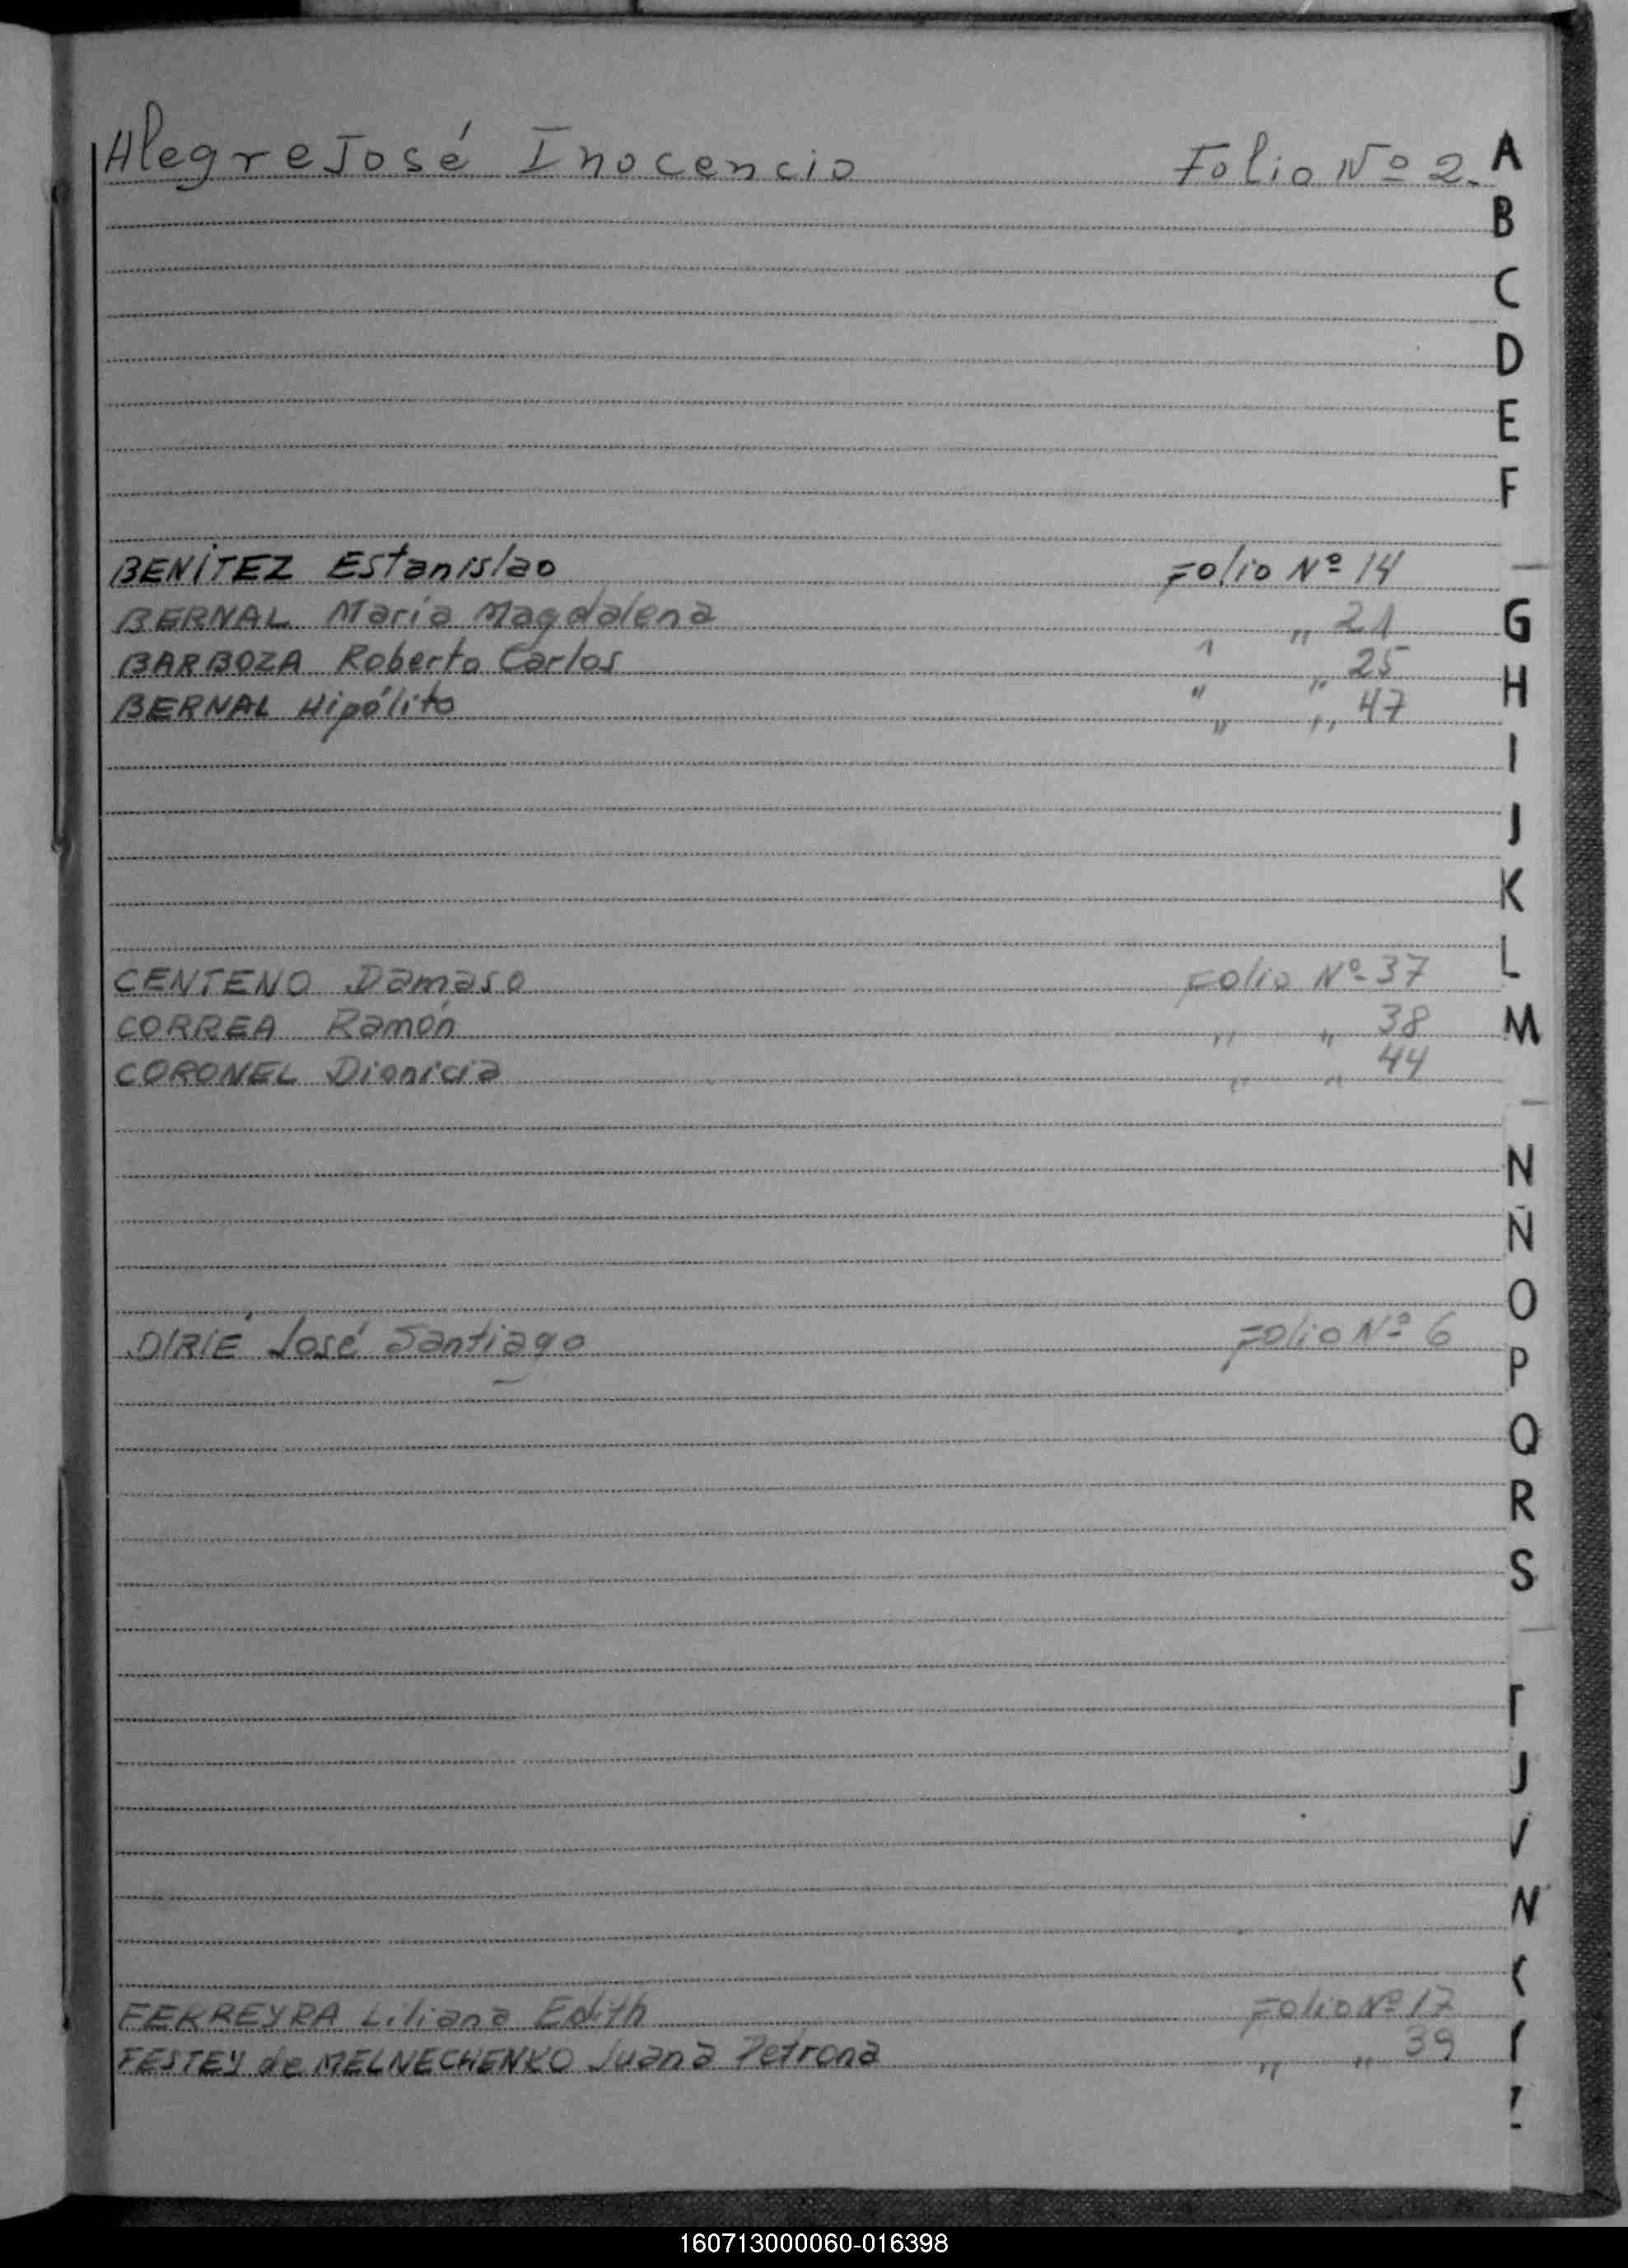 Alegre José Inocencio Folio Nº 2.
BENÍTEZ Estanislao Folio Nº 14
BERNAL María Magdalena " " 21
BARBOZA Roberto Carlos " " 25
BERNAL Hipólito " " 47
CENTENO Damaso Folio Nº 37
CORREA Ramón " " 38
CORONEL Dionicia " " 44
DIRIÉ José Santiago Folio Nº 6
FERREYRA Liliana Edith Folio Nº 17
FESTEY de MELNECHENKO Juana Petrona " " 39
A
B
C
D
E
F
G
H
I
J
K
L
M
N
Ñ
O
P
Q
R
S
160713000060-016398